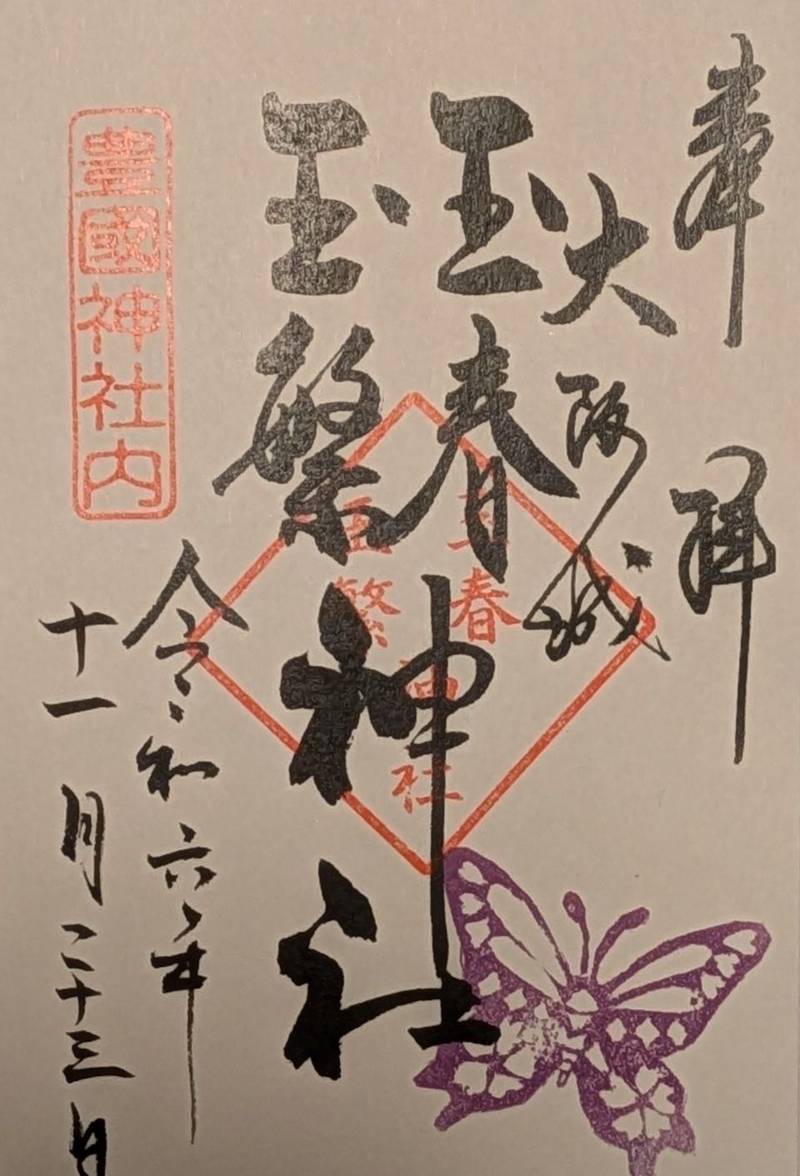 奉拝
大阪城
玉春
玉繁
神社
玉春
玉繁
神社
令和六年
十一月二十三日
豊國神社内